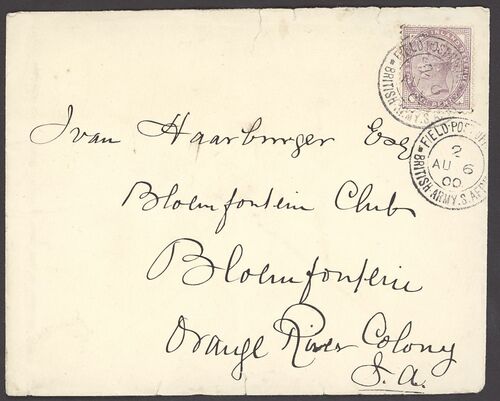 FIELD POST OFFICE
BRITISH ARMY. S. AFRICA
FIELD POST OFFICE
2
AU 6
00
BRITISH ARMY. S. AFRICA
Ivan Haarburger Esq
Bloemfontein Club
Bloemfontein
Orange River Colony
S. A.